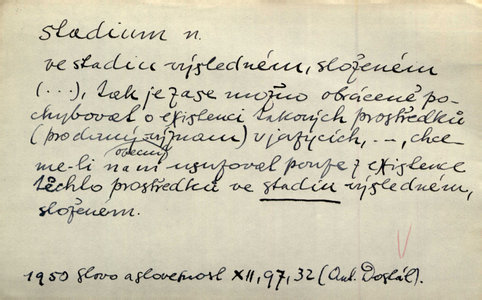 stadium n.
ve stadiu výsledném, složeném
(...), tak je zase možno obráceně po-
chybovat o existenci takových prostředků
(pro daný význam) v jazycích, ..., chce
obecný
me-li na ni usuzovat pouze z existence
těchto prostředků ve stadiu výsledném,
složeném.
1950 Slovo a slovesnost XII, 97, 32 (Ant. Dostál).